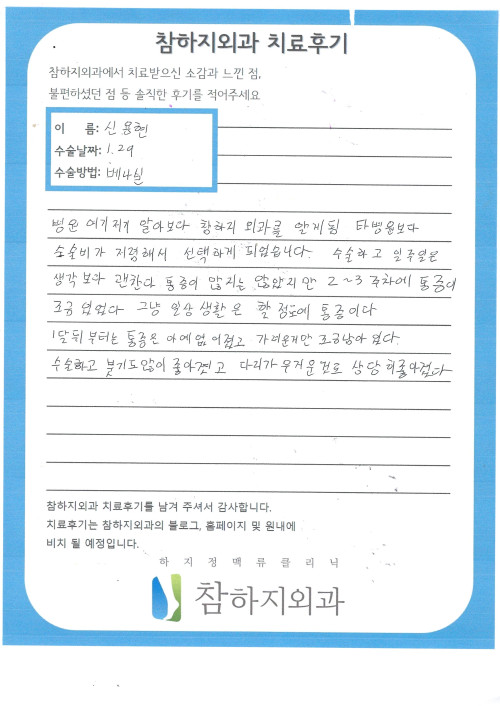 참하지외과 치료후기
참하지외과에서 치료받으신 소감과 느낀 점,
불편하셨던 점 등 솔직한 후기를 적어주세요
이 름: 신용현
수술날짜: 1.29
수술방법: 베나실
병원 여기저기 알아보다 참하지 외과를 알게됨 타병원보다
수술비가 저렴해서 선택하게 되었습니다. 수술하고 일주일은
생각보다 괜찬다 통증이 많지는 않았지만 2~3주차에 통증이
조금 있었다 그냥 일상생활은 할 정도에 통증이다
1달 뒤부터는 통증은 아예 없어졌고 가려운거만 조금남아 있다.
수술하고 붓기도많이 좋아졌고 다리가 무거운것도 상당히좋아졌다
참하지외과 치료후기를 남겨 주셔서 감사합니다.
치료후기는 참하지외과의 블로그, 홈페이지 및 원내에
비치 될 예정입니다.
하지정맥류클리닉
참하지외과